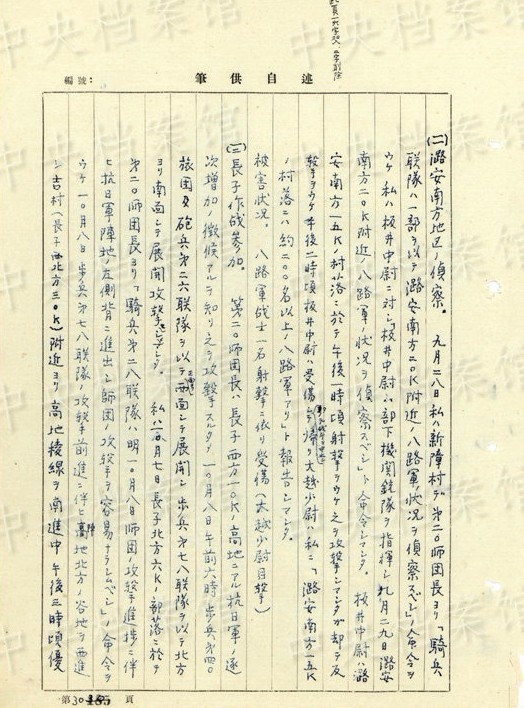 中央档案馆
筆供自述
編號：
(二)潞安南方地区ノ偵察。 九月二八日私ハ新障村デ第二〇師団長ヨリ「騎兵
联隊ハ一部ヲ以テ潞安南方二〇K附近ノ八路軍ノ状況ヲ偵察スベシ」ノ命令ヲ
ウケ私ハ板井中尉ニ対シ「板井中尉ハ部下機関銃隊ヲ指揮シ九月二九日潞安
南方二〇K附近ノ八路軍ノ状況ヲ偵察スベシ」ト命令シマシタ。 板井中尉ハ潞
安南方一五K村落ニ於テ午後一時頃射撃ヲウケ之ヲ攻撃シマシタガ却テ反
撃ヲウケ午後二時頃板井中尉ハ受傷シテ帰リ大越少尉ハ私ニ「潞安南方一五K
ノ村落ニハ約二〇〇名以上ノ八路軍アリ」ト報告シマシタ。
被害状況。 八路軍战士一名射撃ニ依リ受傷(大越少尉目撃)
(三)長子作战参加。 第二〇師団長ハ長子西方一〇Kノ高地ニアル抗日軍ノ逐
次増加ノ徴候アルヲ知リ之ヲ攻撃スルタメ一〇月八日午前六時歩兵第四〇
旅团及砲兵第二六联隊ヲ以テ西面シテ展開シ歩兵第七八联隊ヲ以テ北方
ヨリ南面シテ展開攻撃 私ハ一〇月七日長子北方六Kノ部落ニ於テ
第二〇師団長ヨリ「騎兵第二八联隊ハ明一〇月八日師団ノ攻撃進捗ニ伴
ヒ抗日軍陣地ノ左側背ニ進出シ師団ノ攻撃ヲ容易ナラシムベシ」ノ命令ヲ
ウケ一〇月八日歩兵第七八联隊ノ攻撃前進ニ伴ヒ高地北方ノ谷地ヲ西進
シ吉村(長子西北方三〇K)附近ヨリ高地稜線ヲ南進中午後三時頃優
第30 頁